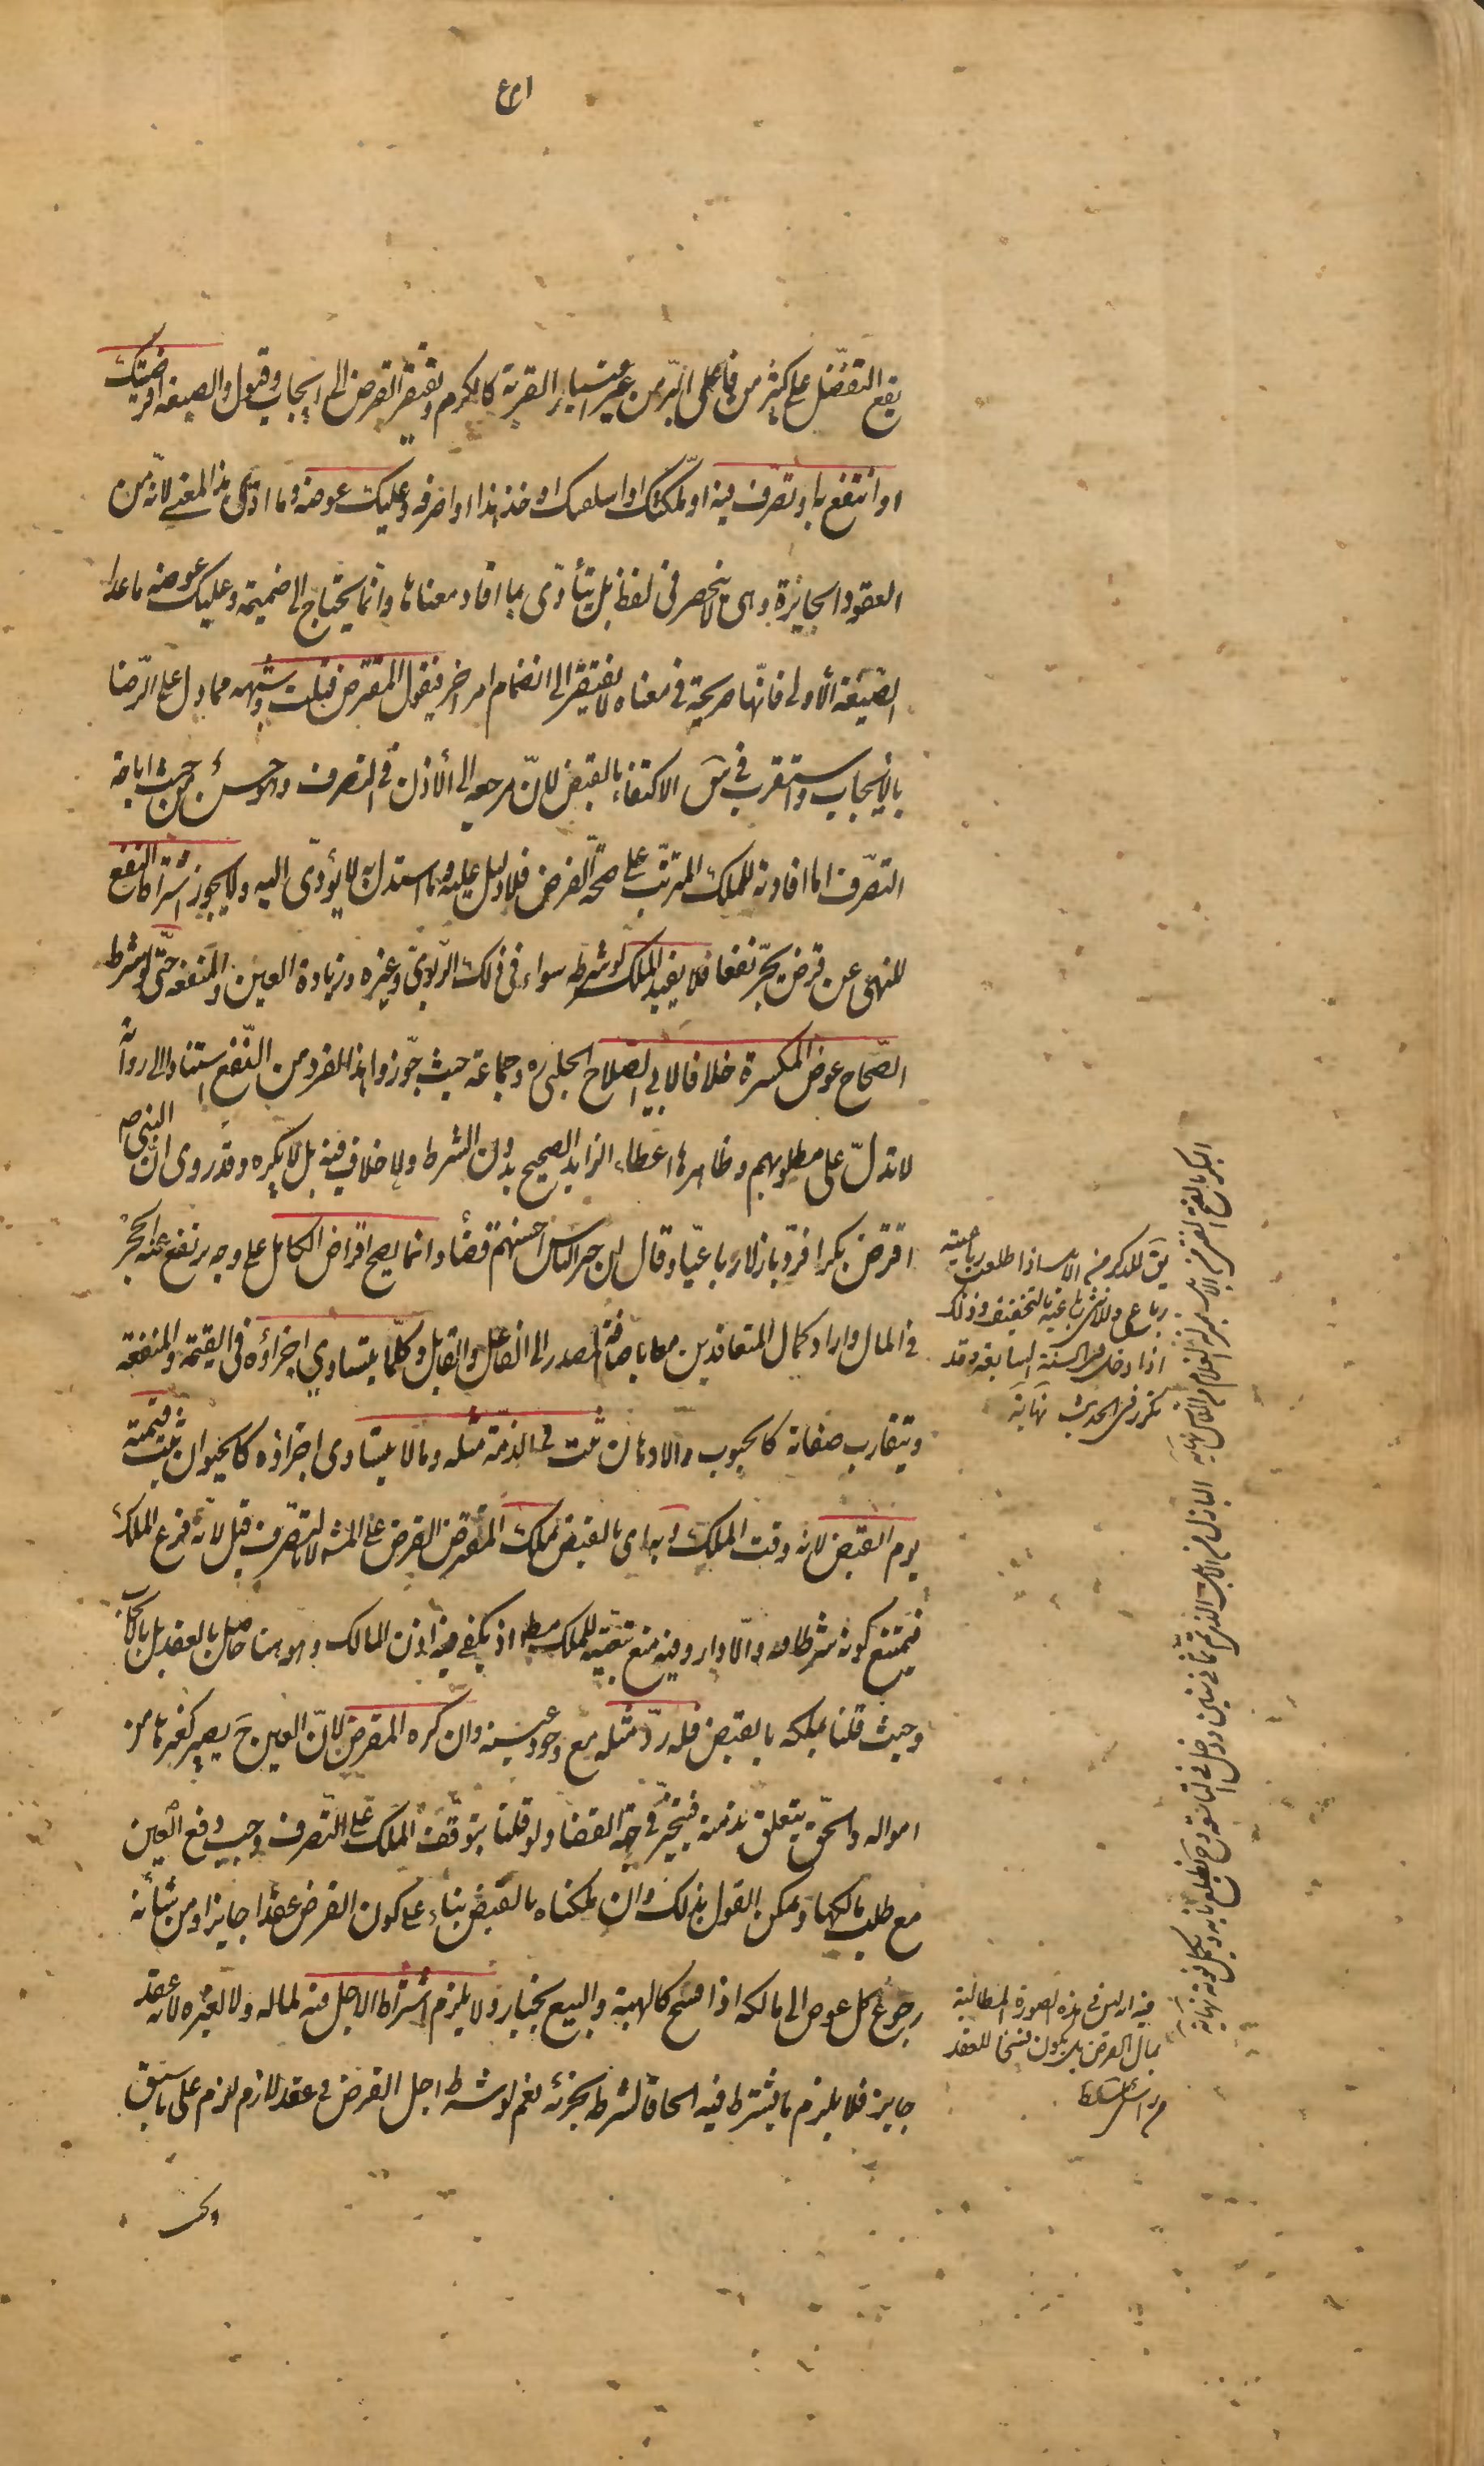 يقع التفضل على كثير من فاعلى البر من غير اعتبار القربة كالكرم ويفتقر القرض الى ايجاب وقبول والصيغة اقرضتك
او انتفع به او تصرف فيه او ملكتك او اسلفتك او خذ هذا او اصرفه وعليك عوضه وما ادى هذا المعنى لانه من
العقود الجايزة وهى لا ينحصر فى لفظ بل يتأدى بما افاد معناها وانما يحتاج الى ضميمة وعليك عوضه ما عدا
الصيغة الأولى فانها صريحة فى معناه لا يفتقر الى انضمام امر اخر فيقول المقترض قبلت وشبهه مما دل على الرضا
بالايجاب واستقرب فى س الاكتفاء بالقبض لان مرجعه الى الأذن فى التصرف وهو حسن من حيث اباحة
التصرف اما افادته للملك المترتب على صحة القرض فلا دليل عليه وما استدل به لا يؤدى اليه ولا يجوز اشتراط النفع
للنهى عن قرض يجر نفعا فلا يفيد الملك لو شرطه سواء فى ذلك الربوى وغيره وزيادة العين والمنفعة حتى لو شرط
الصحاح عوض المكسرة خلافا لابي الصلاح الحلبى ره وجماعة حيث جوزوا هذا الفرد من النفع استنادا الى رواية
لا تدل على مطلوبهم وظاهرها اعطاء الزايد الصحيح بدون الشرط ولا خلاف فيه بل لا يكره وقد روى ان النبى ص
اقترض بكرا فرد بازلا رباعيا وقال ان خير الناس احسنهم قضأ وانما يصح اقراض الكامل على وجه يرتفع عنه الحجر
فى المال واراد كمال المتعاقدين معا باضافة المصدر الى الفاعل والقابل وكلما يتساوي اجزاؤه فى القيمة والمنفعة
وتتقارب صفاته كالحبوب والادهان ثبت فى الذمة مثله وما لا يتساوى اجزاؤه كالحيوان ثبت قيمته
يوم القبض لانه وقت الملك وبه اى بالقبض يملك المقترض القرض على المشهور لا بالتصرف قبل لأنه فرع الملك
فيمتنع كونه شرطا فيه والا دار وفيه منع تبعيته للملك مطلقا اذ يكفي فيه اذن المالك وهو هنا حاصل بالعقد بل بالايجاب
وحيث قلنا يملكه بالقبض فله رد مثله مع وجود عينه وان كره المقرض لان العين ح يصير كغيرها من
امواله والحق يتعلق بذمته فيتخير فى جهة القضا ولو قلنا بتوقف الملك على التصرف وجب دفع العين
مع طلب مالكها ويمكن القول بذلك وان ملكناه بالقبض بناء على كون القرض عقدا جايزا ومن شأنه
رجوع كل عوض الى مالكه اذا فسخ كالهبة والبيع بخيار ولا يلزم اشتراط الاجل فيه لماله ولا لغيره لانه عقد
جايز فلا يلزم ما يشترط فيه الحاقا لشرطه بجزئه نعم لو شرط اجل القرض فى عقد لازم لزم على ما سبق
يق للذكر من الابل اذا طلعت رباعيته
رباع وللانثى رباعية بالتخفيف وذلك
اذا دخلا فى السنة السابعة وقد
تكرر فى الحديث نهاية
البكر بالفتح الفتى من الابل بمنزلة الغلام من الناس نهاية
البازل من الابل الذى تم ثمانى سنين ودخل فى التاسعة وح يطلع نابه وتكمل قوته نهاية
فيه ان ليس فى هذه الصورة المطالبة
بمال القرض بل يكون فسخا للعقد